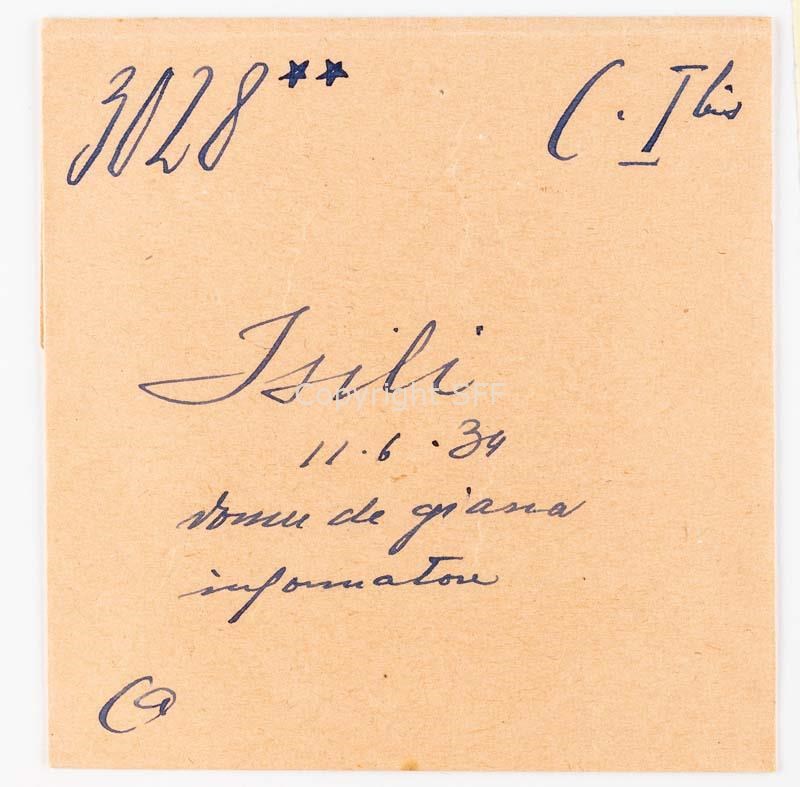 3028** C. I bis
Isili
11.6.34
domu de giana
informatore
Ca
Copyright SFF